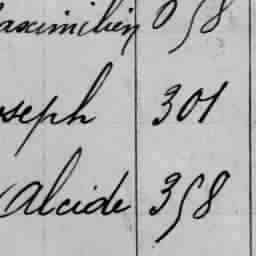 aximilien 058
oseph 301
Alcide 358